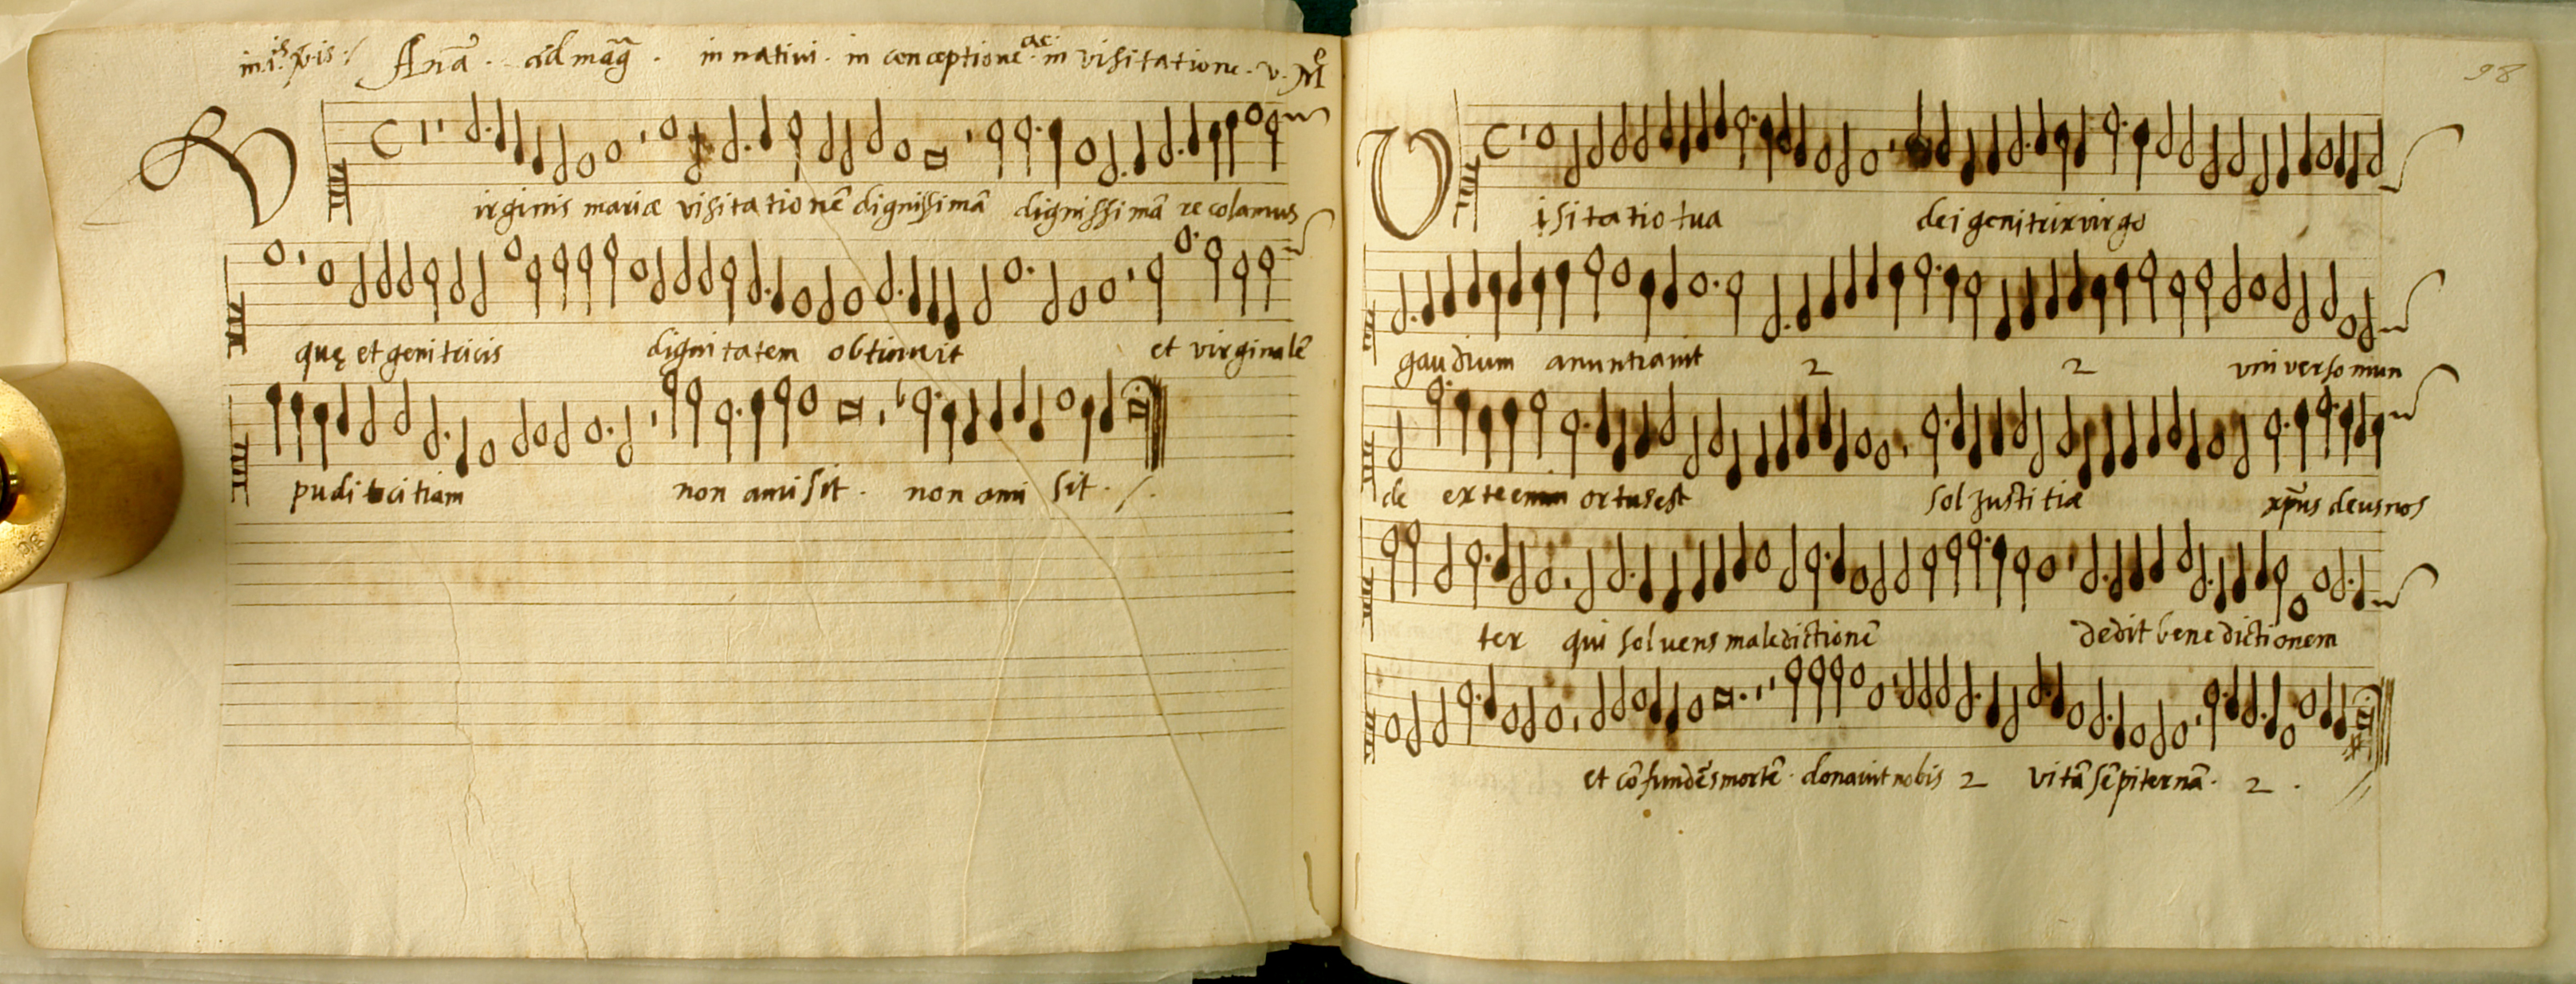 in i.is vp̃is :/ Anã . ad mãg̃ . in nativi . in conceptione . ac in visitatione . v. M
Virginis mariæ visitationẽ dignissimã dignissimã recolamus
quę et genitricis dignitatem obtinuit et virginalẽ
pudicitiam non amisit . non ami sit .
98
Visitatio tua dei genitrix virgo
gaudium anuntiauit 2 2 vniverso mun
de ex te enim ortus est sol Justitiæ xp̃us deus nos
ter qui soluens maledictionẽ dedit benedictionem
et cõfundẽs mortẽ . donauit nobis 2 vitã sẽpiternã . 2 .